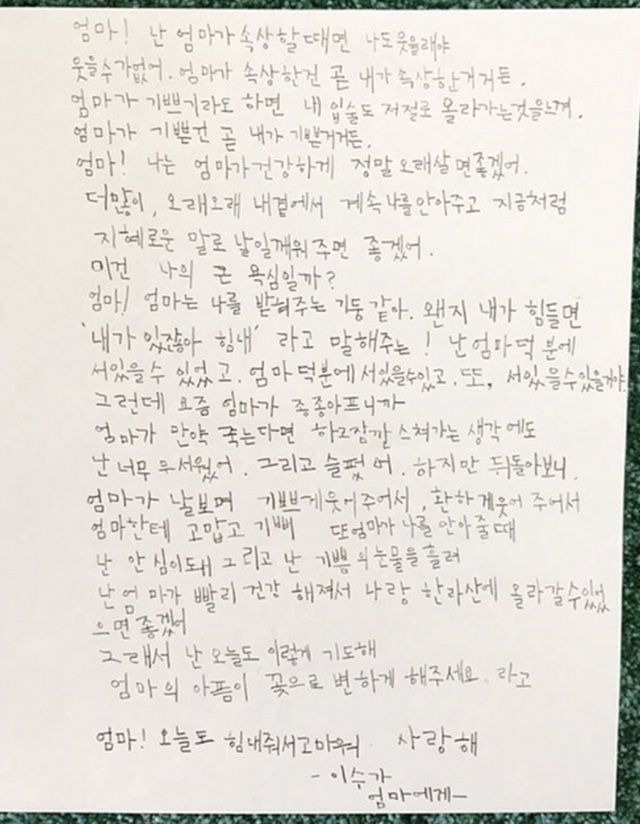 엄마! 난 엄마가 속상할때면 나도 웃을래야
웃을수가없어. 엄마가 속상한건 곧 내가 속상한거거든.
엄마가 기쁘기라도 하면 내 입술도 저절로 올라가는것을느껴.
엄마가 기쁜건 곧 내가 기쁜거거든.
엄마! 나는 엄마가건강하게 정말오래살면좋겠어.
더많이, 오래오래 내곁에서 계속나를안아주고 지금처럼
지혜로운 말로 날일깨워주면 좋겠어.
이건 나의 큰 욕심일까?
엄마! 엄마는 나를 받춰주는 기둥같아. 왠지 내가 힘들면
'내가 있잖아 힘내' 라고 말해주는! 난엄마덕분에
서있을수 있었고. 엄마덕분에서있을수있고. 또, 서있을수있을거야.
그런데 요즘 엄마가 종종아프니까
엄마가 만약 죽는다면 하고잠깐 스쳐가는 생각에도
난너무무서웠어. 그리고 슬펐어. 하지만 뒤돌아보니.
엄마가 날보며 기쁘게웃어주어서, 환하게웃어 주어서
엄마한테 고맙고 기뻐 또엄마가 나를안아줄때
난 안심이돼 그리고 난 기쁨의눈물을흘려
난엄마가 빨리건강 해져서 나랑 한라산에 올라갈수있었
으면좋겠어
그래서 난오늘도 이렇게 기도해
엄마의 아픔이 꽃으로 변하게 해주세요. 라고
엄마! 오늘도 힘내줘서고마워. 사랑해
-이수가
엄마에게-